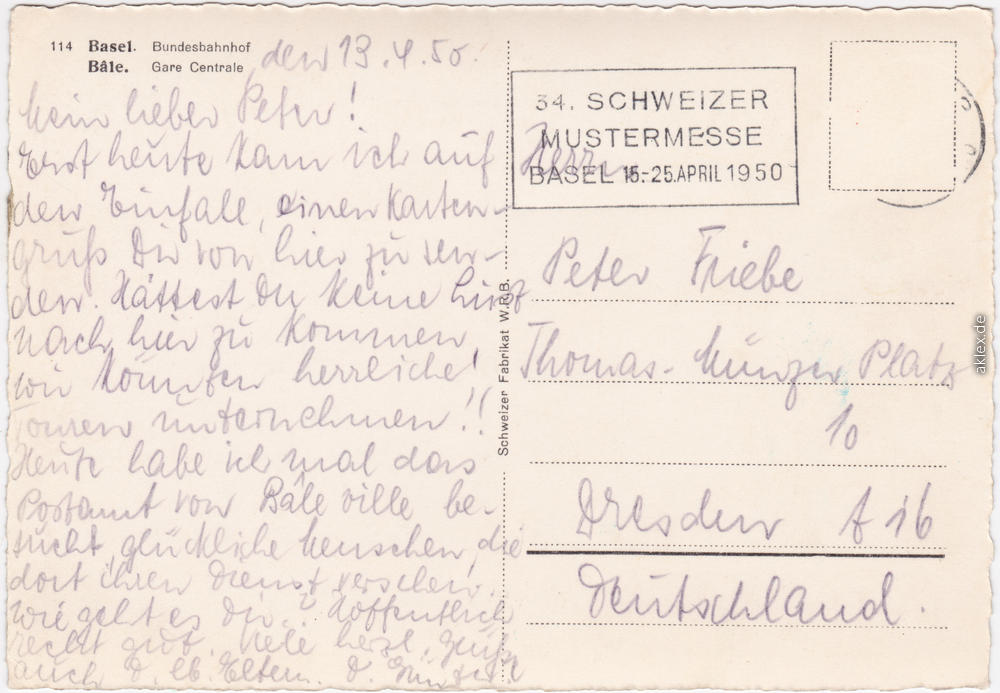 114 Basel. Bundesbahnhof
Bâle. Gare Centrale
den 13.4.50.
Mein lieber Peter!
Erst heute kam ich auf
den Einfall, einen Karten-
gruß Dir von hier zu sen-
den. Hättest Du keine Lust
nach hier zu kommen,
wir könnten herrliche!
Touren unternehmen!!
Heute habe ich mal das
Postamt von Bâle ville be-
sucht, glückliche Menschen, die
dort ihren Dienst versehen.
Wie geht es Dir? Hoffentlich
recht gut. Viele herzl. Grüße
auch d. lb. Eltern. D. Günter.
Schweizer Fabrikat W.R.B.
34. SCHWEIZER
MUSTERMESSE
BASEL 15-25.APRIL 1950
Herrn
Peter Friebe
Thomas-Münzer Platz
10
Dresden A 16
Deutschland.
aklex.de